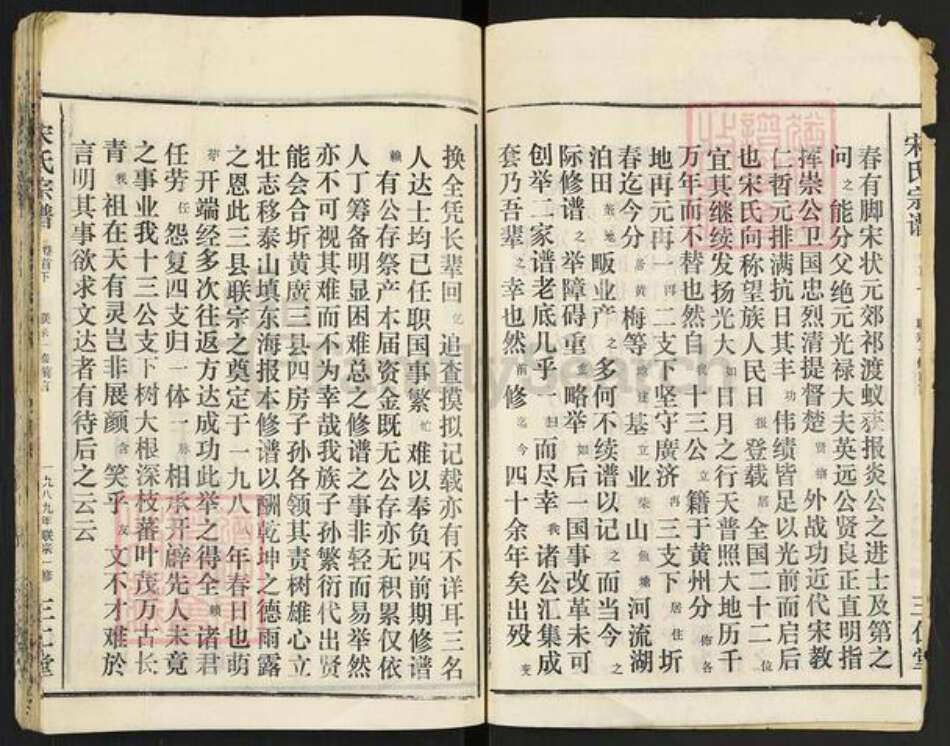 春有脚宋状元郊祁渡蚁获报炎公之进士及第之
问之能分父绝元光禄大夫英远公贤良正直明指
挥崇公卫国忠烈清提督楚贤
外战功近代宋教
仁哲元排满抗日其丰功伟绩皆足以光前而启后
也宋氏向称望族人民日报登载居全国二十二位
宜其继续发扬光大如日月之行天普照大地历千
万年而不替也然自我十三公立籍于黄州分佈各
地再元再一四二支下坚守廣济再三支下居住圻
春迄今分居黄梅等
建基立业柴山
河流湖
泊田茶地畈业产之多何不续谱以记之而当今之
际修谱之举障碍重重略举如后一国事改革未可
创举二家谱老底几乎一扫而尽幸我诸公汇集成
套乃吾辈之幸也然前修迄今四十余年矣出殁变
换全凭长辈回忆追查摸拟记载亦有不详耳三名
人达士均已任职国事繁忙难以奉负四前期修谱
赖有公存祭产本届资金既无公存亦无积累仅依
人丁筹备明显困难总之修谱之事非轻而易举然
亦不可视其难而不为幸哉我族子孙繁衍代出贤
能会合圻黄廣三县四房子孙各领其责树雄心立
壮志移泰山填东海报本修谱以酬乾坤之德雨露
之恩此三县联宗之奠定于一九八
年春日也萌
芽开端经多次往返方达成功此举之得全赖诸君
任劳任怨复四支归一体一脉相承开辟先人未竟
之事业我十三公支下树大根深枝蕃叶茂万古长
青我祖在天有灵岂非展颜含笑乎友文不才难於
言明其事欲求文达者有待后之云云
宋氏宗谱
卷首下
一九八九年联宗一修
三仁堂
宋氏宗谱
三仁堂
FamilySearch